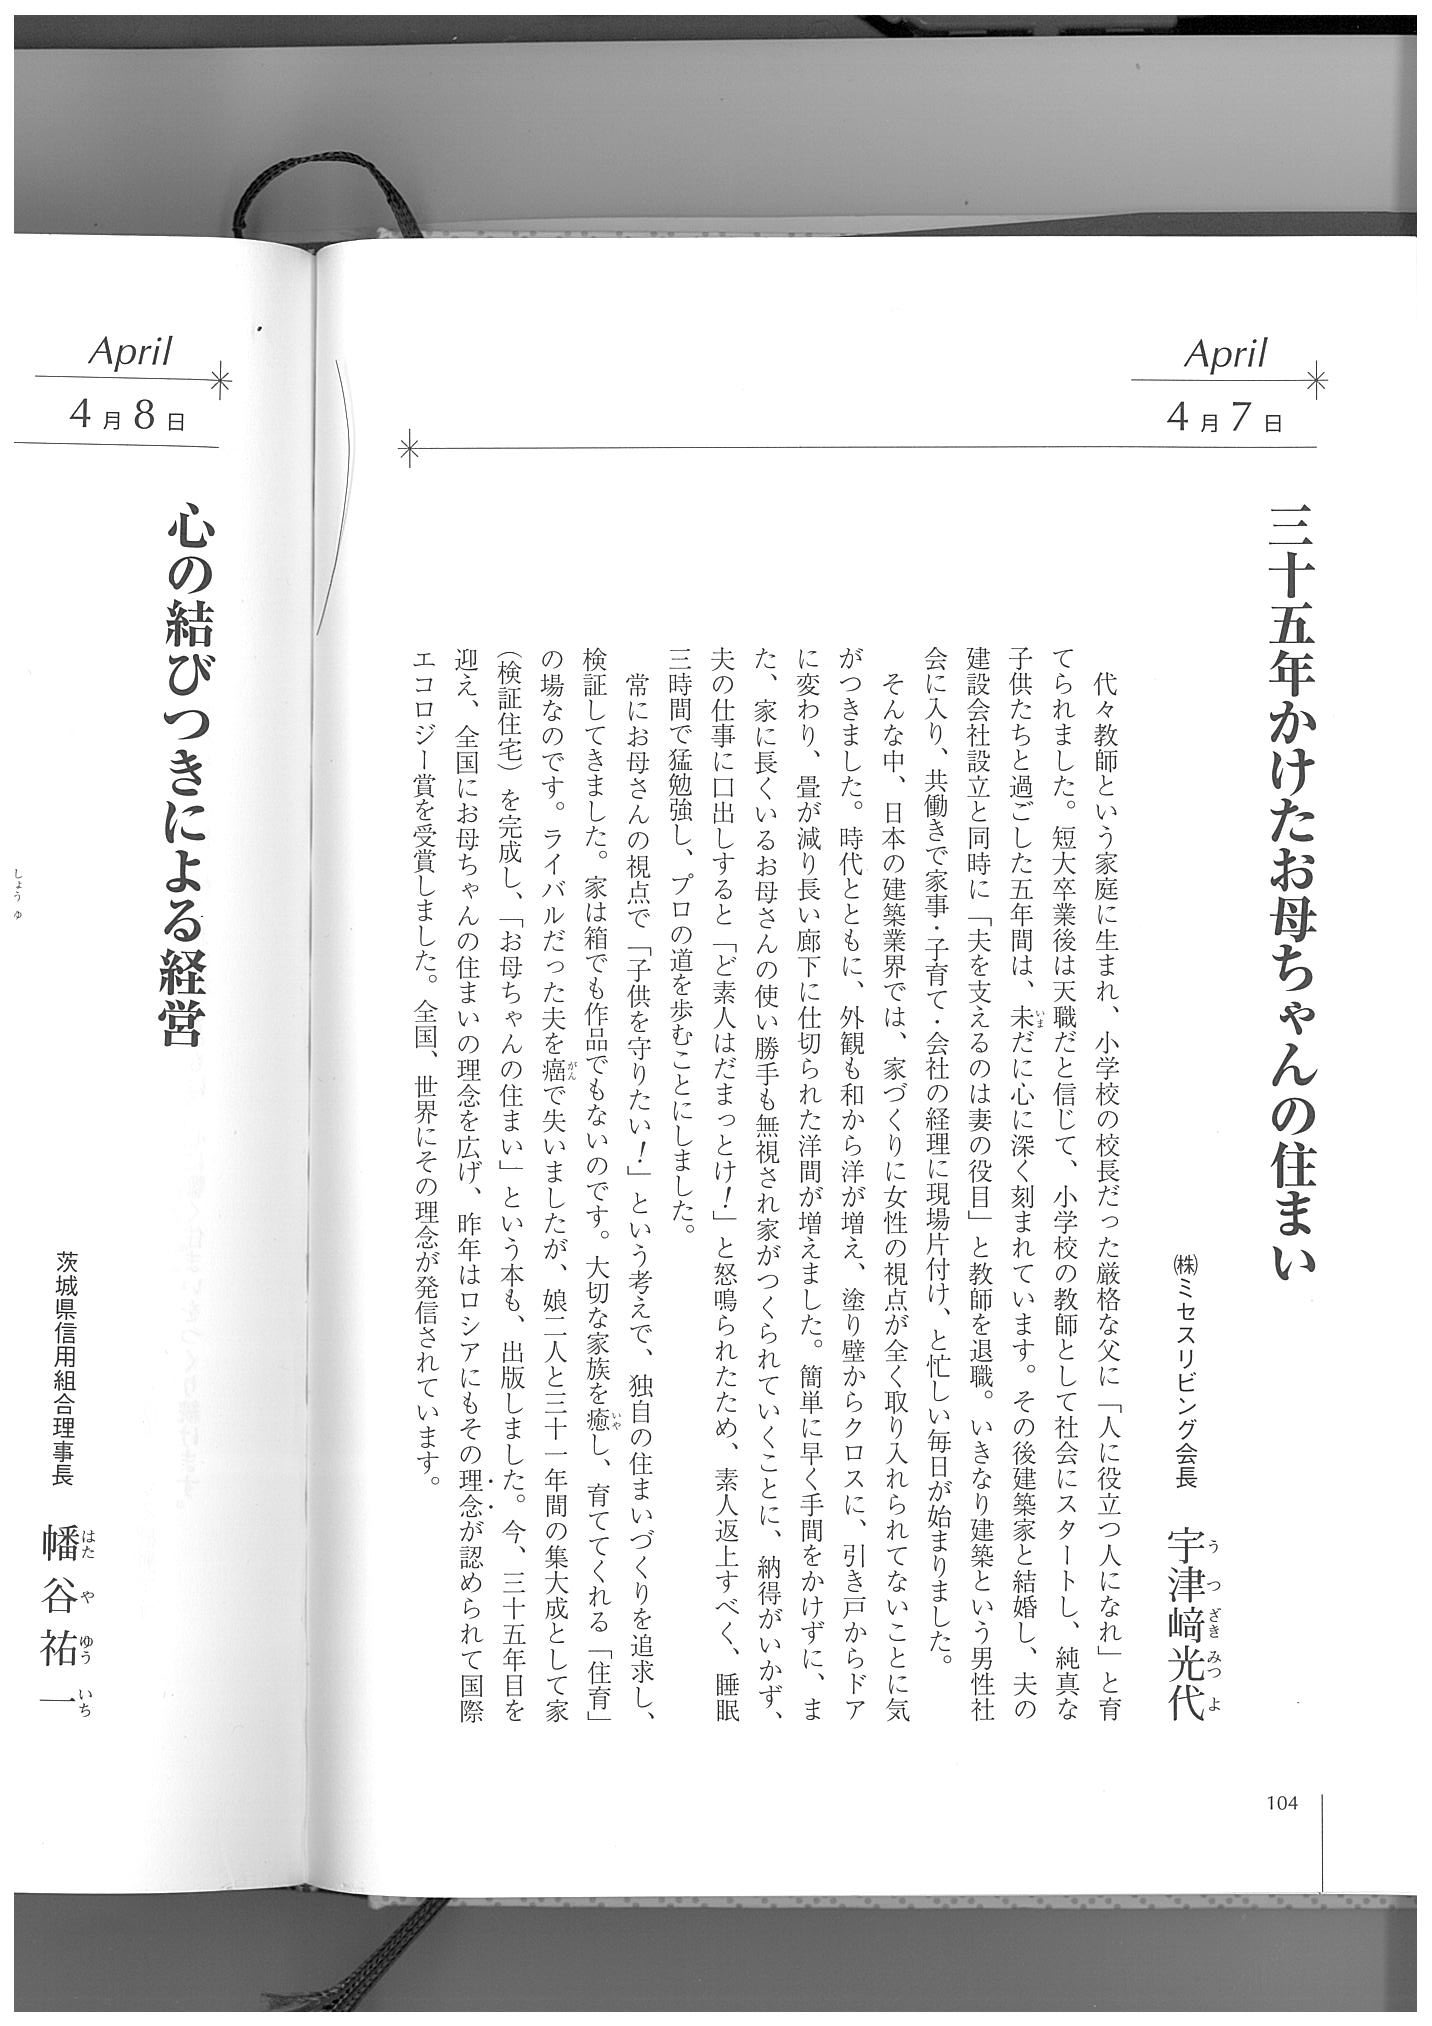 April
4月7日
三十五年かけたお母ちゃんの住まい
㈱ミセスリビング会長 宇津﨑光代
うつざきみつよ
代々教師という家庭に生まれ、小学校の校長だった厳格な父に「人に役立つ人になれ」と育
てられました。短大卒業後は天職だと信じて、小学校の教師として社会にスタートし、純真な
子供たちと過ごした五年間は、未だに心に深く刻まれています。その後建築家と結婚し、夫の
いま
建設会社設立と同時に「夫を支えるのは妻の役目」と教師を退職。いきなり建築という男性社
会に入り、共働きで家事・子育て・会社の経理に現場片付け、と忙しい毎日が始まりました。
そんな中、日本の建築業界では、家づくりに女性の視点が全く取り入れられてないことに気
がつきました。時代とともに、外観も和から洋が増え、塗り壁からクロスに、引き戸からドア
に変わり、畳が減り長い廊下に仕切られた洋間が増えました。簡単に早く手間をかけずに、ま
た、家に長くいるお母さんの使い勝手も無視され家がつくられていくことに、納得がいかず、
夫の仕事に口出しすると「ど素人はだまっとけ!」と怒鳴られたため、素人返上すべく、睡眠
三時間で猛勉強し、プロの道を歩むことにしました。
常にお母さんの視点で「子供を守りたい!」という考えで、独自の住まいづくりを追求し、
検証してきました。家は箱でも作品でもないのです。大切な家族を癒し、育ててくれる「住育」
いや
の場なのです。ライバルだった夫を癌で失いましたが、娘二人と三十一年間の集大成として家
がん
(検証住宅)を完成し、「お母ちゃんの住まい」という本も、出版しました。今、三十五年目を
迎え、全国にお母ちゃんの住まいの理念を広げ、昨年はロシアにもその理念が認められて国際
エコロジー賞を受賞しました。全国、世界にその理念が発信されています。
104
April
4月8日
心の結びつきによる経営
茨城県信用組合理事長 幡谷祐一
はたやゆういち
しょうゆ